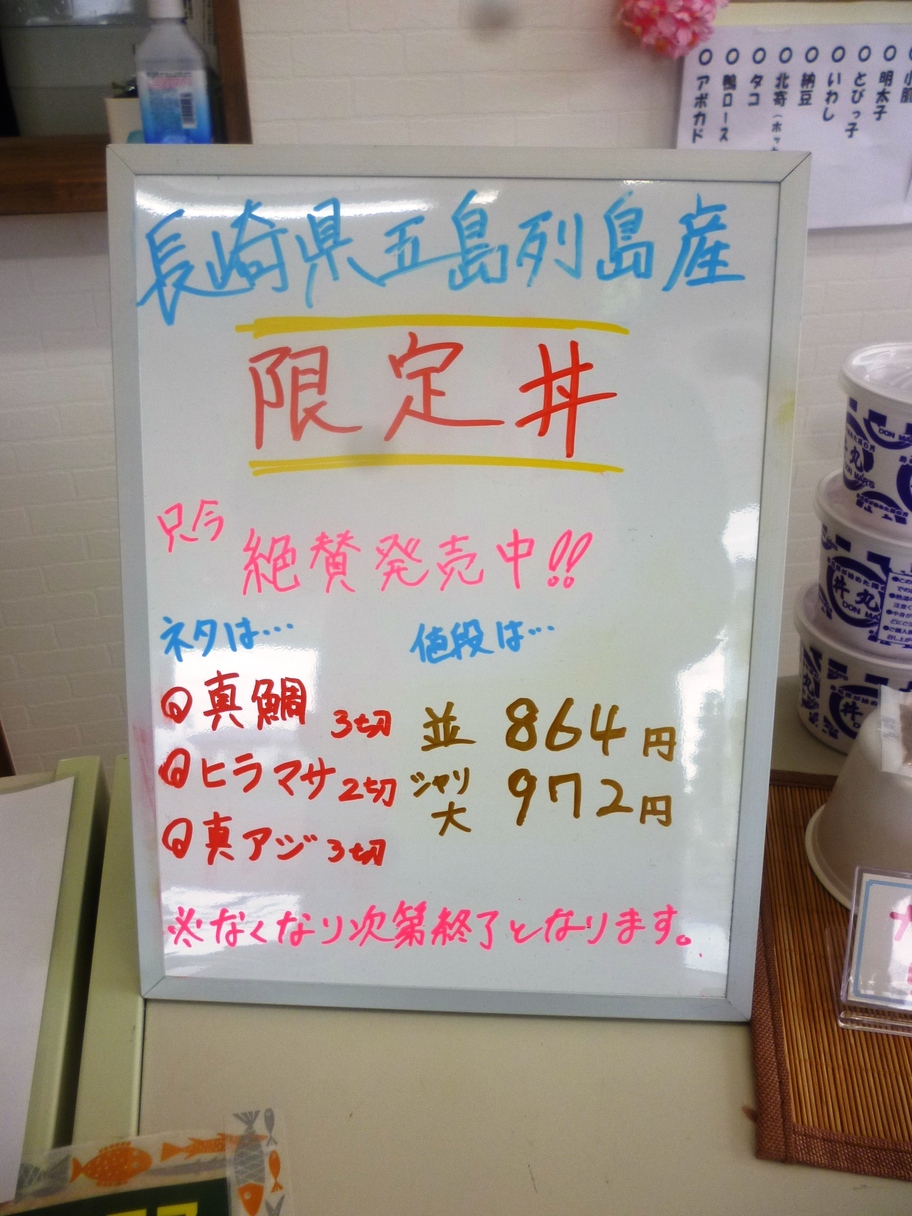 長崎県五島列島産
限定丼
只今
絶賛発売中!!
ネタは…
◎真鯛 3切
◎ヒラマサ 2切
◎真アジ 3切
値段は…
並 864円
シャリ大 972円
※なくなり次第終了となります。
○明太子
○とびっ子
○いわし
○納豆
○北寄
○タコ
○鴨ロース
○アボカド
丼丸
DON MARU